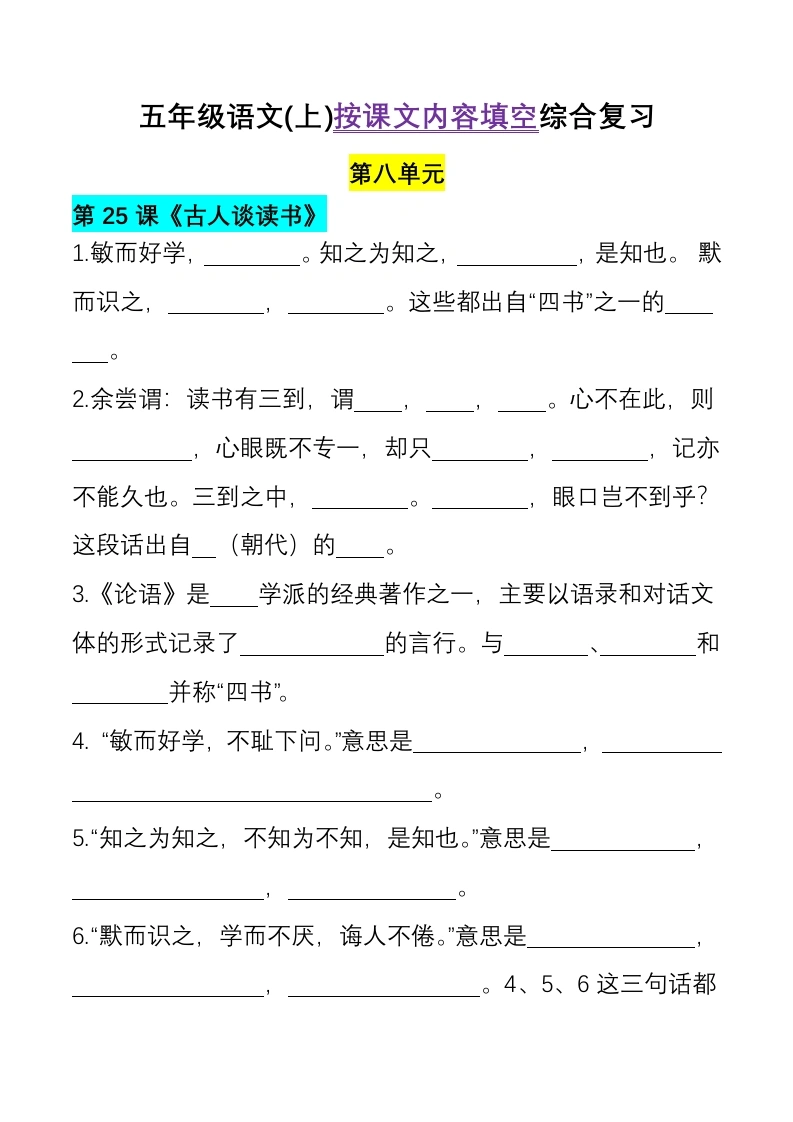 五年级语文(上)按课文内容填空综合复习
第八单元
第 25 课《古人谈读书》
1.敏而好学，________。知之为知之，__________，是知也。 默
而识之，________，________。这些都出自“四书”之一的____
___。
2.余尝谓：读书有三到，谓____，____，____。心不在此，则
__________，心眼既不专一，却只________，________，记亦
不能久也。三到之中，________。________，眼口岂不到乎？
这段话出自__（朝代）的____。
3.《论语》是____学派的经典著作之一，主要以语录和对话文
体的形式记录了____________的言行。与_______、________和
________并称“四书”。
4. “敏而好学，不耻下问。”意思是______________，__________
______________________________。
5.“知之为知之，不知为不知，是知也。”意思是____________，
________________，______________。
6.“默而识之，学而不厌，诲人不倦。”意思是______________，
________________，________________。4、5、6 这三句话都